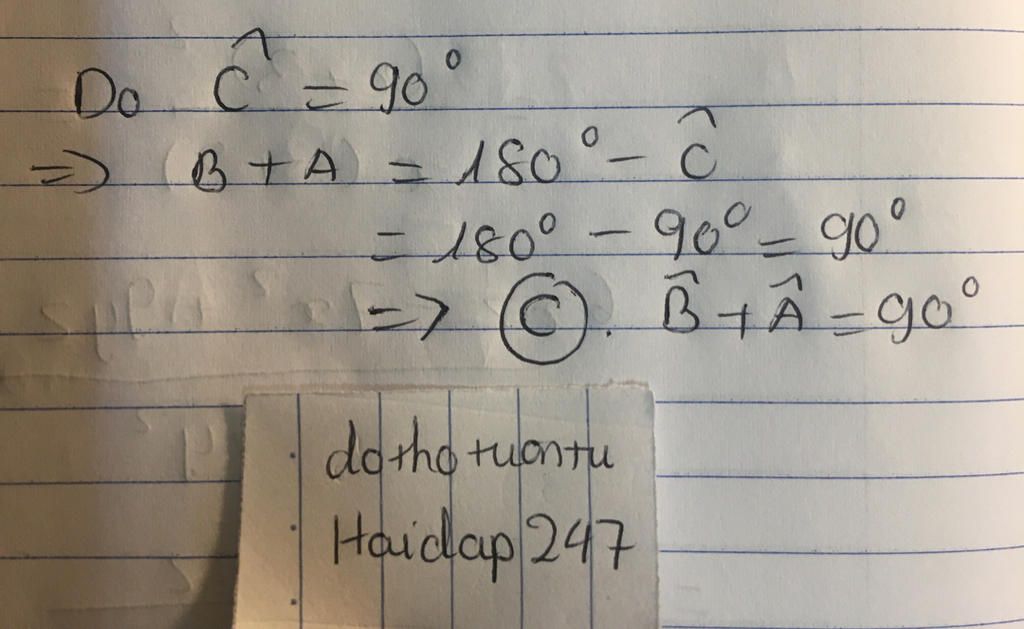 Do Ĉ = 90°
=> B + A = 180° - Ĉ
= 180° - 90° = 90°
=> C. B̂ + Â = 90°
dothotuontu
Hoidap247